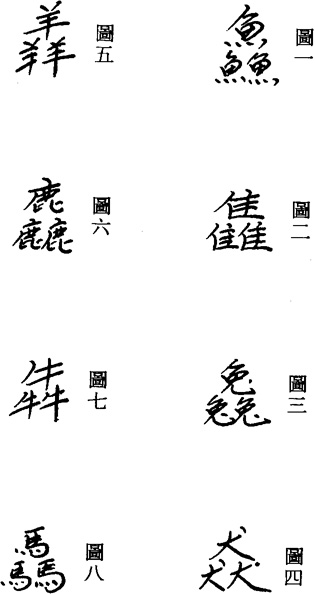 圖一
鱻
圖二
雥
圖三
𠓗
圖四
猋
圖五
羴
圖六
麤
圖七
犇
圖八
驫